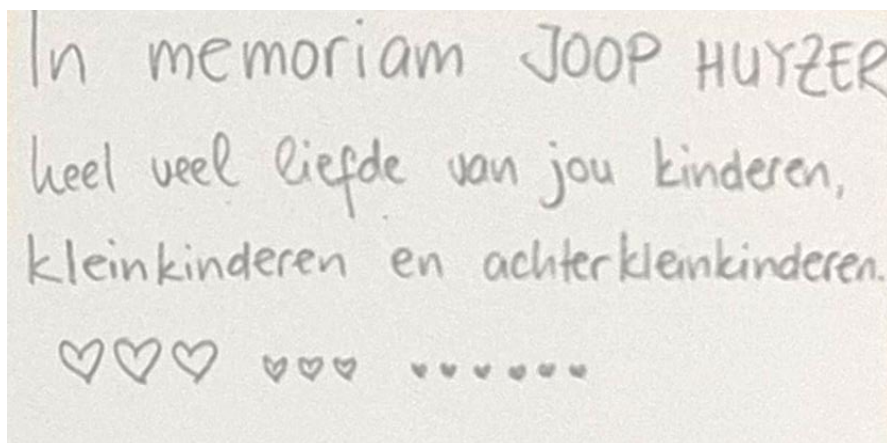 In memoriam JOOP HUYZER
heel veel liefde van jou kinderen,
kleinkinderen en achterkleinkinderen.
♡♡♡ ♡♡♡ ♥♥♥♥♥♥